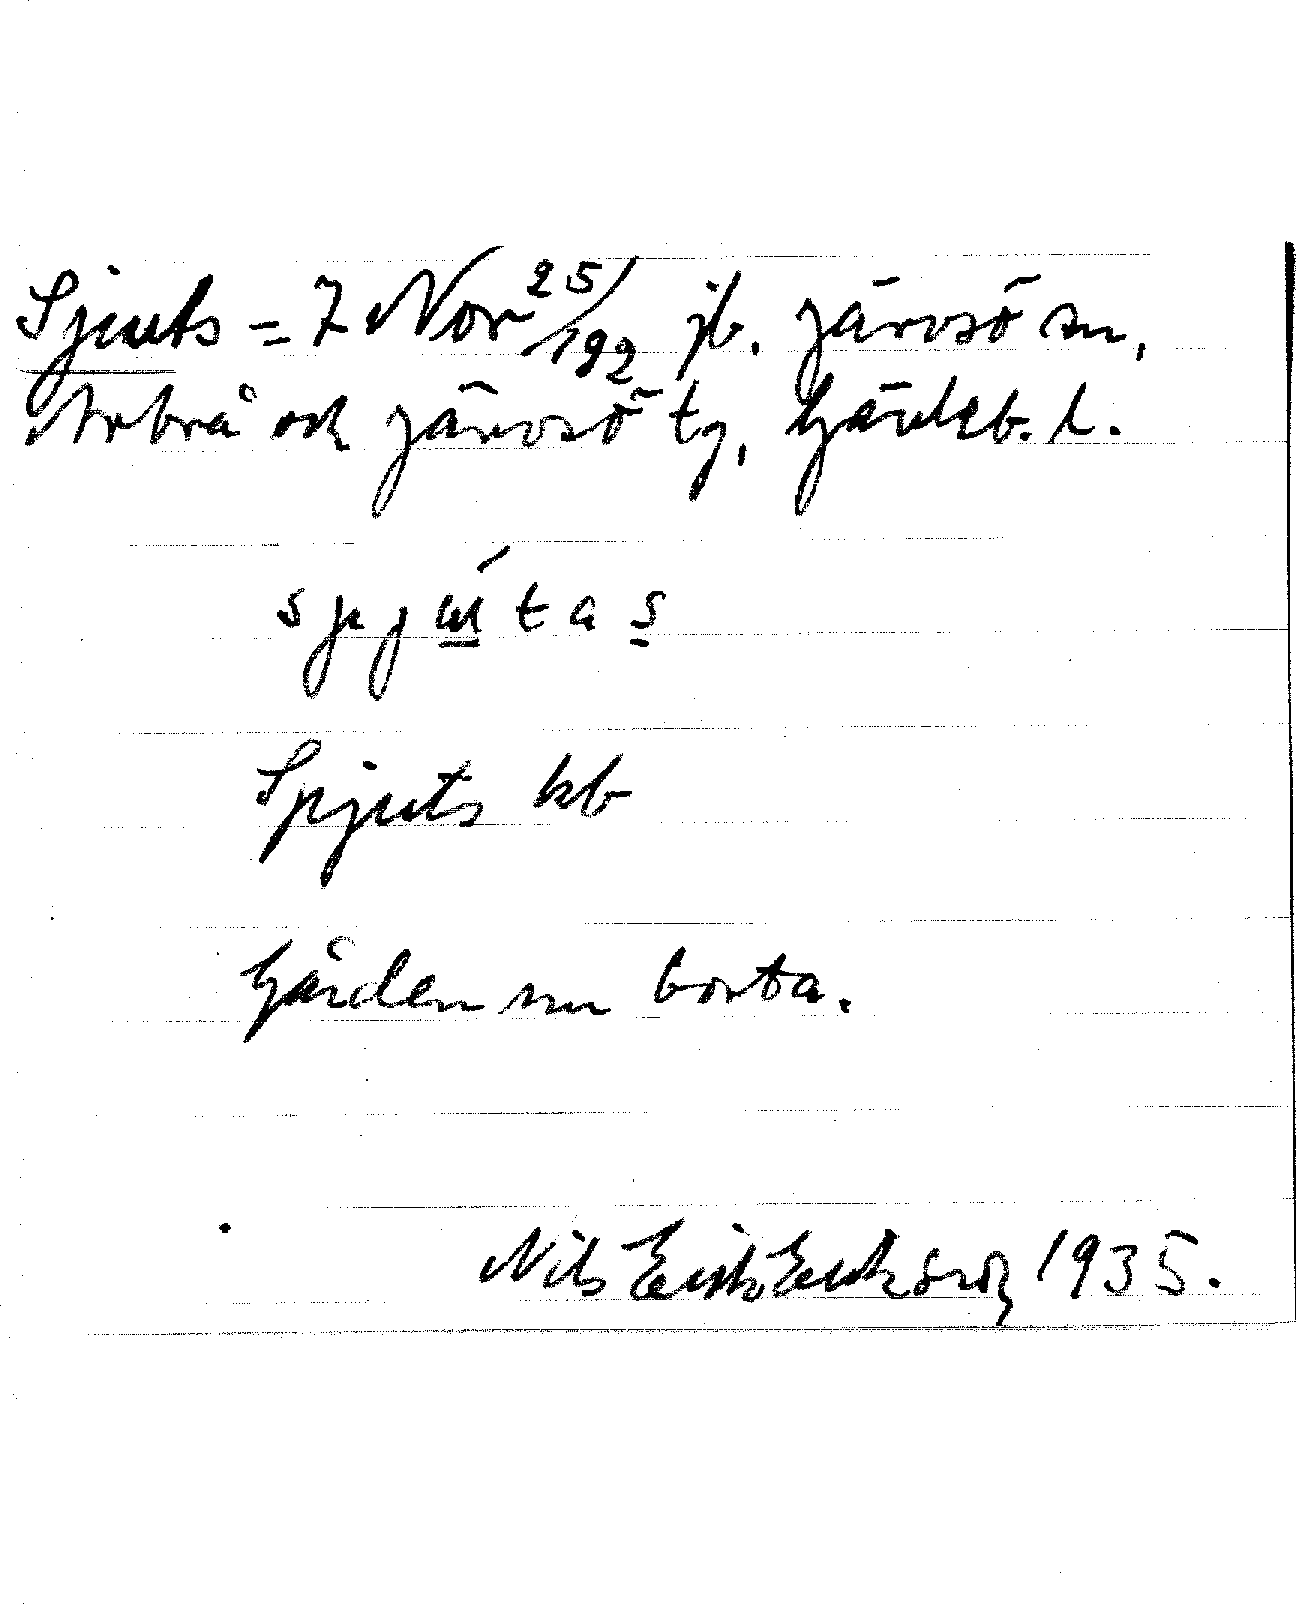 Sjuts = 7 Nor 25/192 jb. Järvsö sn,
Arbrå och Järvsö tg, Gävleb. l.
spjú̲tas̲
Spjuts kb
Gården nu borta.
Nils Erik Eriksson 1935.